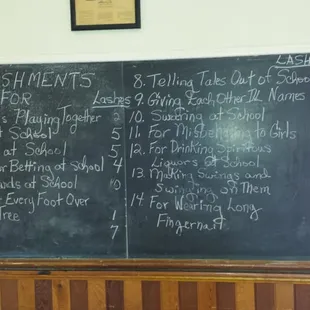 SHMENTS
FOR
Lashes
s Playing Together 2
t School 5
at School 5
r Betting at School 4
ds at School 10
Every Foot Over
ree 1
7
LASH
8. Telling Tales Out of School
9. Giving Each Other Ill Names
10. Swearing at School
11. For Misbehaving to Girls
12. For Drinking Spirituous
Liquors at School
13. Making Swings and
Swinging on Them
14. For Wearing Long
Fingernail